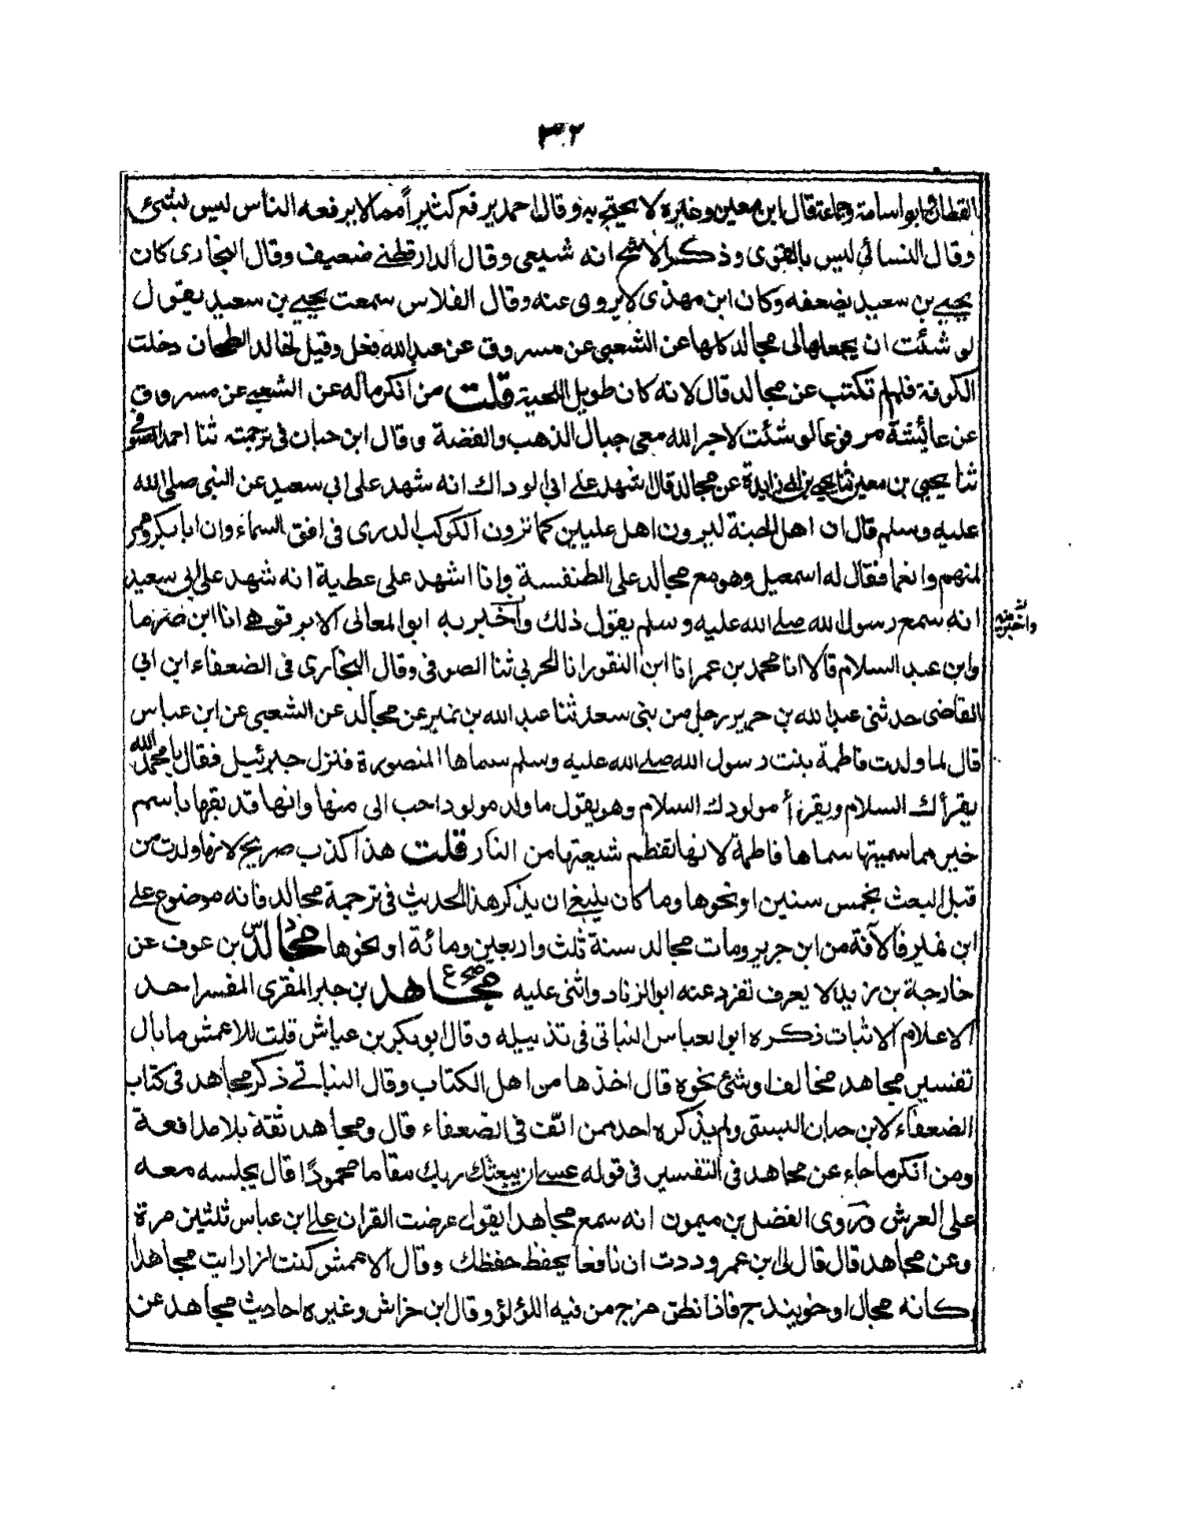 ٣٠٢
القطان وابو اسامة وجماعة قال ابن معين وغيره لا يحتج به وقال احمد يرفع كثيراً مما لا يرفعه الناس ليس بشئ
وقال النسائي ليس بالقوى وذكر الاشج انه شيعي وقال الدارقطني ضعيف وقال البخاري كان
يحيى بن سعيد يضعفه وكان ابن مهدى لا يروى عنه وقال الفلاس سمعت يحيى بن سعيد يقول
لو شئت ان يجعلها لى مجالد كلها عن الشعبي عن مسروق عن عبد الله فعل وقيل لخالد الطحان دخلت
الكوفة فلم لم تكتب عن مجالد قال لانه كان طويل اللحية قلت من انكر ماله عن الشعبي عن مسروق
عن عائشة مرفوعا لو شئت لاجرا الله معي جبال الذهب والفضة وقال ابن حبان في ترجمته ثنا احمد الصوفي
ثنا يحيى بن معين ثنا يحيى بن ابي زايدة عن مجالد قال شهد على ابي الوداك انه شهد على ابي سعيد عن النبي صلى الله
عليه وسلم قال ان اهل الجنة ليرون اهل عليين كما ترون الكوكب الدرى في افق السماء وان ابا بكر وعمر
لمنهم وانعما فقال له اسمعيل وهو مع مجالد على الطنفسة وانا اشهد على عطية انه شهد على ابي سعيد
انه سمع رسول الله صلى الله عليه وسلم يقول ذلك واخبر به ابو المعالى الابرقوهي انا ابن صرما
وابن عبد السلام قالا انا محمد بن عمر انا ابن النقور انا الحربي ثنا الصوفي وقال البخارى في الضعفاء ابن ابي
القاضى حدثنى عبد الله بن جرير رجل من بنى سعد ثنا عبد الله بن نمير عن مجالد عن الشعبي عن ابن عباس
قال لما ولدت فاطمة بنت رسول الله صلى الله عليه وسلم سماها المنصورة فنزل جبرئيل فقال يا محمد الله
يقرأك السلام ويقرأ مولودك السلام وهو يقول ما ولد مولود احب الى منها وانها قد لقبها باسم
خير مما سميتها سماها فاطمة لانها تفطم شيعتها من النار قلت هذا كذب صريح لانها ولدت من
قبل البعث بخمس سنين او نحوها وما كان ينبغي ان يذكر هذا الحديث في ترجمة مجالد فانه موضوع على
ابن نمير فالآفة من ابن جرير ومات مجالد سنة ثلث واربعين ومائة او نحوها مجالد بن عوف عن
خارجة بن زيد لا يعرف تفرد عنه ابو الزناد واثنى عليه مجاهد بن جبر المقرى المفسر احد
الاعلام الاثبات ذكره ابو العباس النباتى في تذييله وقال ابو بكر بن عياش قلت للاعمش ما بال
تفسير مجاهد مخالف او شئ نحوه قال اخذها من اهل الكتاب وقال النباتي ذكر مجاهد في كتاب
الضعفاء لابن حبان البستي ولم يذكره احد ممن الف في الضعفاء قال ومجاهد ثقة بلا مدافعة
ومن انكر ما جاء عن مجاهد في التفسير في قوله عسى ان يبعثك ربك مقاما محمودًا قال يجلسه معه
على العرش وروى الفضل بن ميمون انه سمع مجاهدا يقول عرضت القران على ابن عباس ثلثين مرة
وعن مجاهد قال قال لى ابن عمر وددت ان نافعا يحفظ حفظك وقال الاعمش كنت اذا رايت مجاهدا
كانه مجال او خربندج فاذا نطق خرج من فيه اللؤلؤ وقال ابن خراش وغيره احاديث مجاهد عن